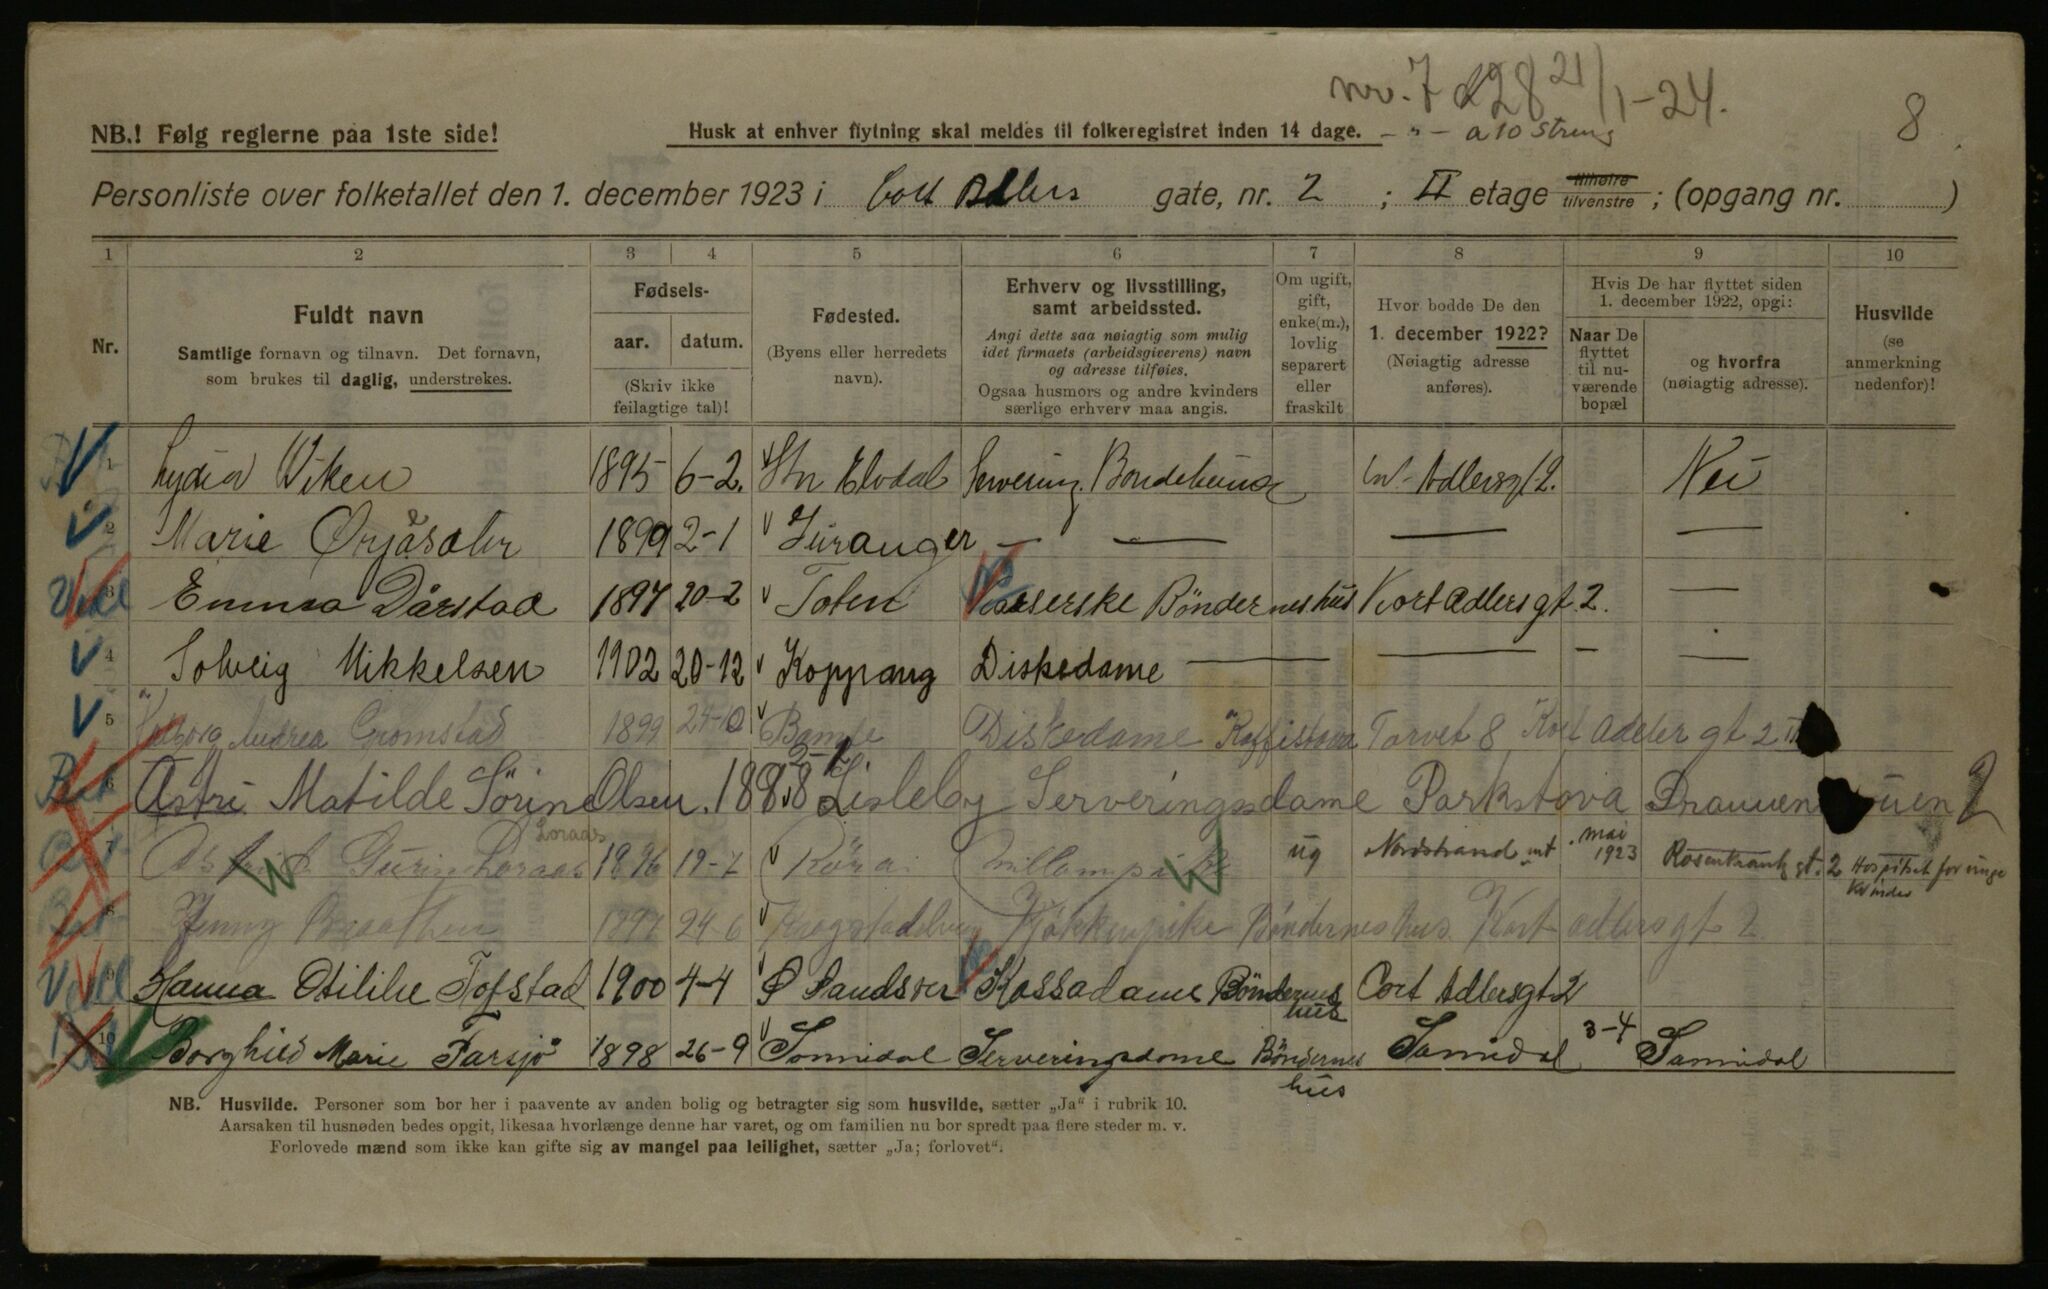 nr. 7 d 28 21/1-24.
8
NB.! Følg reglerne paa 1ste side!
Husk at enhver flytning skal meldes til folkeregistret inden 14 dage. - " - a 10
Personliste over folketallet den 1. december 1923 i Cort Adlers gate, nr. 2 ; II etage tilhøire tilvenstre ; (opgang nr. )
1 2 3 4 5 6 7 8 9 10
Nr.
Fuldt navn
Samtlige fornavn og tilnavn. Det fornavn,
som brukes til daglig, understrekes.
Fødsels-
aar. datum.
(Skriv ikke
feilagtige tal)!
Fødested.
(Byens eller herredets
navn).
Erhverv og livsstilling,
samt arbeidssted.
Angi dette saa nøiagtig som mulig
idet firmaets (arbeidsgiverens) navn
og adresse tilføies.
Ogsaa husmors og andre kvinders
særlige erhverv maa angis.
Om ugift,
gift,
enke(m.),
lovlig
separert
eller
fraskilt
Hvor bodde De den
1. december 1922?
(Nøiagtig adresse
anføres).
Hvis De har flyttet siden
1. december 1922, opgi:
Naar De
flyttet
til nu-
værende
bopæl
og hvorfra
(nøiagtig adresse).
Husvilde
(se
anmerkning
nedenfor)!
1 Lydia Wiken 1895 6-2. Str Elvdal Servering. Bondeheimen Adlersgt 2. Nei
2 Marie 1899 2-1 — — — —
3 Emma Dårstad 1897 20-2 Toten Kasserske Bøndernes hus Kort Adlersgt 2. —
4 Solveig Mikkelsen 1902 20-12 Koppang Diskedame — — — —
5 Andrea Gromstad 1899 24-10 Bamle Diskedame Kaffistova Torvet 8 Kort Adeler gt 2 II
6 Astri Matilde Sørine Olsen. 1898 2-1 Lisleby Serveringsdame Parkstova Drammen
7 Astrid Guri Loraas Loraas 1896 19-7 ug Nordstrand mai 1923 Rosenkrantz gt. 2 Hospitset for unge Kvinder
8 Jenny Braathen 1897 24-6 Kjøkkenpike Bøndernes hus Kort Adlersgt 2
9 Hanna Otilie Tofstad 1900 4-4 Ø Sandsvær Kassadame Bøndernes hus Cort Adlersgt 2
10 Borghild Marie Farsjø 1898 26-9 Sannidal Serveringsdame Bøndernes hus Sannidal 3-4 Sannidal
NB. Husvilde. Personer som bor her i paavente av anden bolig og betragter sig som husvilde, sætter „Ja" i rubrik 10.
Aarsaken til husnøden bedes opgit, likesaa hvorlænge denne har varet, og om familien nu bor spredt paa flere steder m. v.
Forlovede mænd som ikke kan gifte sig av mangel paa leilighet, sætter „Ja; forlovet".